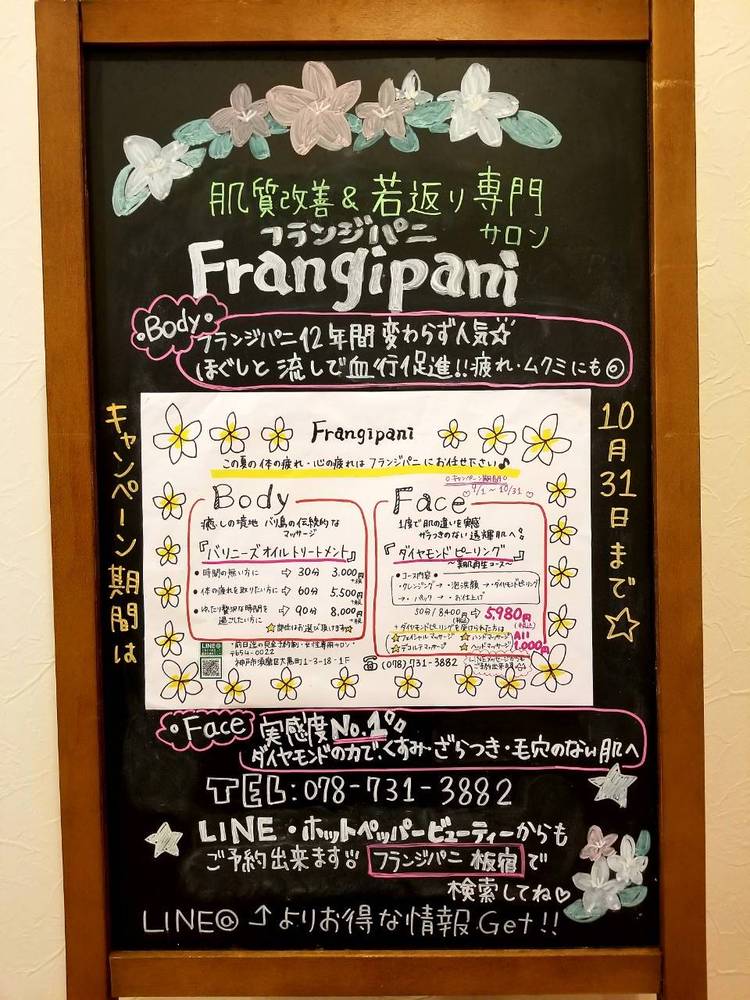 肌質改善&若返り専門
サロン
フランジパニ
Frangipani
Body
フランジパニ12年間変わらず人気☆
ほぐしと流しで血行促進!!疲れ・ムクミにも◎
キャンペーン期間は
10月31日まで☆
Frangipani
この夏の体の疲れ・心の疲れはフランジパニにお任せ下さい♪
Body
癒しの境地 バリ島の伝統的な
マッサージ
『バリニーズオイルトリートメント』
・時間の無い方に ⇨ 30分 3.000円
・体の疲れを取りたい方に ⇨ 60分 5.500円
・ゆったり贅沢な時間を
過ごしたい方に ⇨ 90分 8,000円
☆部位はお選び頂けます☆
キャンペーン期間
9/1~10/31
Face
1度で肌の違いを実感
ザラつきのない透輝肌へ
『ダイヤモンドピーリング』
~美肌再生コース~
・コース内容・
・クレンジング→・泡洗顔→・ダイヤモンドピーリング
→・パック→・お仕上げ
50分/8400円(税込)→5,980円(税込)
ダイヤモンドピーリングを受けられた方は
☆フェイシャルマッサージ ☆ハンドマッサージ
☆デコルテマッサージ ☆ヘッドマッサージ
All
1.000円
・前日迄の完全予約制・女性専用サロン・
〒654-0022
神戸市須磨区大黒町1-3-18-1F
☎(078)731-3882
LINEメッセージからも
ご予約出来ます
Face
実感度No.1
ダイヤモンドの力で、くすみ・ざらつき・毛穴のない肌へ
TEL:078-731-3882
LINE・ホットペッパービューティーからも
ご予約出来ます フランジパニ 板宿 で
検索してね♡
LINE@ ↑よりお得な情報Get!!